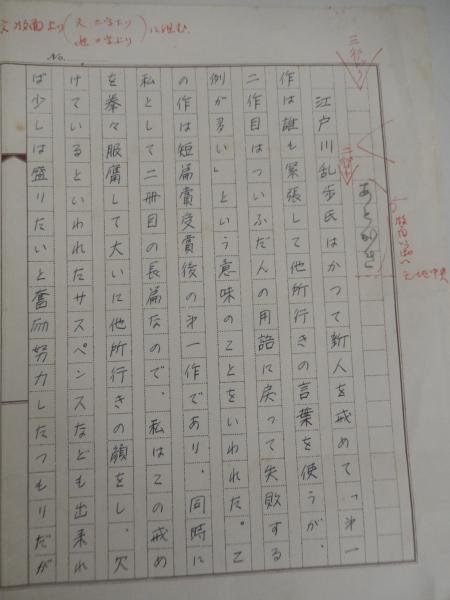 No.
あとがき
江戸川乱歩氏はかつて新人を戒めて「第一
作は誰も緊張して他所行きの言葉を使うが、
二作目はついふだんの用語に戻って失敗する
例が多い」という意味のことをいわれた。こ
の作は短篇賞受賞後の第一作であり、同時に
私として二冊目の長篇なので、私はこの戒め
を拳々服膺して大いに他所行きの顔をし、欠
けているといわれたサスペンスなども出来れ
ば少しは盛りたいと奮励努力したつもりだが